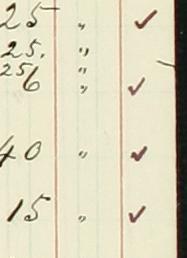 25 " ✓
25. "
25 "
6 " ✓
40 " ✓
15 " ✓